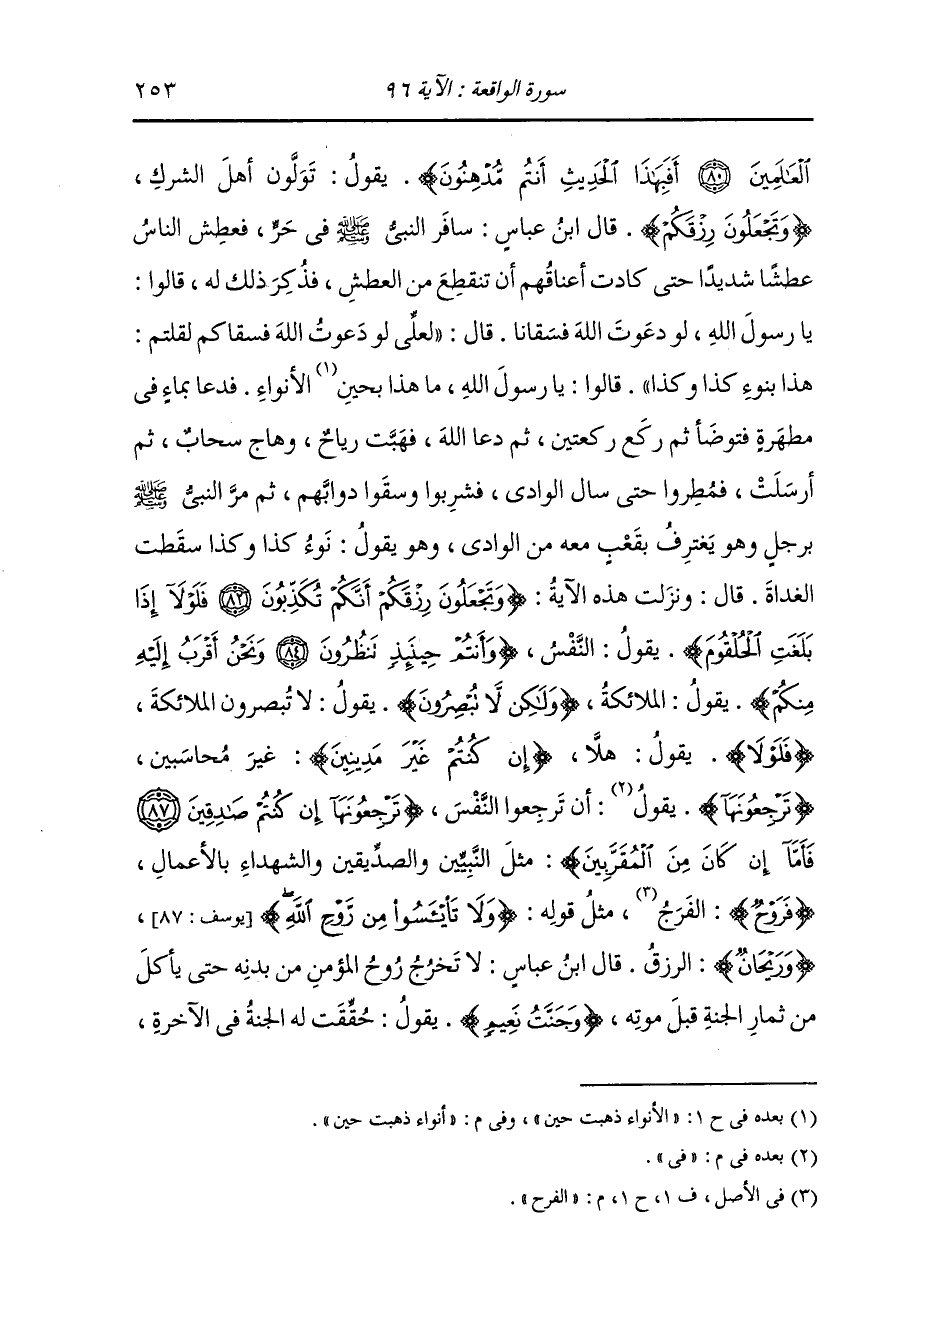 سورة الواقعة : الآية ٩٦ ٢٥٣
ٱلْعَٰلَمِينَ ﴿٨٠﴾ أَفَبِهَٰذَا ٱلْحَدِيثِ أَنتُم مُّدْهِنُونَ﴾ . يقولُ : تَوَلَّون أهلَ الشركِ ،
﴿وَتَجْعَلُونَ رِزْقَكُمْ﴾ . قال ابنُ عباسٍ : سافَر النبىُّ ﷺ فى حَرٍّ ، فعطِش الناسُ
عطشًا شديدًا حتى كادت أعناقُهم أن تنقطِعَ من العطشِ ، فذُكِرَ ذلك له ، قالوا :
يا رسولَ اللهِ ، لو دعَوتَ اللهَ فسَقانا . قال : «لعلِّى لو دَعوتُ اللهَ فسقاكم لقلتم :
هذا بنوءِ كذا وكذا» . قالوا : يا رسولَ اللهِ ، ما هذا بحينِ(١) الأنواءِ . فدعا بماءٍ فى
مطهَرةٍ فتوضَأ ثم ركَع ركعتين ، ثم دعا اللهَ ، فهَبَّت رياحٌ ، وهاج سحابٌ ، ثم
أرسَلَتْ ، فمُطِروا حتى سال الوادى ، فشرِبوا وسقَوا دوابَّهم ، ثم مرَّ النبىُّ ﷺ
برجلٍ وهو يَغترِفُ بقَعْبٍ معه من الوادى ، وهو يقولُ : نَوءُ كذا وكذا سقَطت
الغداةَ . قال : ونزَلت هذه الآيةُ : ﴿وَتَجْعَلُونَ رِزْقَكُمْ أَنَّكُمْ تُكَذِّبُونَ ﴿٨٢﴾ فَلَوْلَآ إِذَا
بَلَغَتِ ٱلْحُلْقُومَ﴾ . يقولُ : النَّفْسُ ، ﴿وَأَنتُمْ حِينَئِذٍ تَنظُرُونَ ﴿٨٤﴾ وَنَحْنُ أَقْرَبُ إِلَيْهِ
مِنكُمْ﴾ . يقولُ : الملائكةُ ، ﴿وَلَٰكِن لَّا تُبْصِرُونَ﴾ . يقولُ : لا تُبصرون الملائكةَ ،
﴿فَلَوْلَا﴾ . يقولُ : هلَّا ، ﴿إِن كُنتُمْ غَيْرَ مَدِينِينَ﴾ : غيرَ مُحاسَبين ،
﴿تَرْجِعُونَهَآ﴾ . يقولُ(٢) : أن تَرجعوا النَّفْسَ ، ﴿تَرْجِعُونَهَآ إِن كُنتُمْ صَٰدِقِينَ ﴿٨٧﴾
فَأَمَّآ إِن كَانَ مِنَ ٱلْمُقَرَّبِينَ﴾ : مثلَ النَّبِيِّين والصدِّيقين والشهداءِ بالأعمالِ ،
﴿فَرَوْحٌ﴾ : الفَرَجُ(٣) ، مثلُ قولِه : ﴿وَلَا تَاْيْـَٔسُواْ مِن رَّوْحِ ٱللَّهِۖ﴾ [يوسف : ٨٧] ،
﴿وَرَيْحَانٌ﴾ : الرزقُ . قال ابنُ عباسٍ : لا تَخرُجُ رُوحُ المؤمنِ من بدنِه حتى يأكلَ
من ثمارِ الجنةِ قبلَ موتِه ، ﴿وَجَنَّتُ نَعِيمٍ﴾ . يقولُ : حُقِّقَت له الجنةُ فى الآخرةِ ،
(١) بعده فى ح ١: «الأنواء ذهبت حين» ، وفى م : «أنواء ذهبت حين» .
(٢) بعده فى م : «فى» .
(٣) فى الأصل ، ف ١، ح ١، م : «الفرح» .